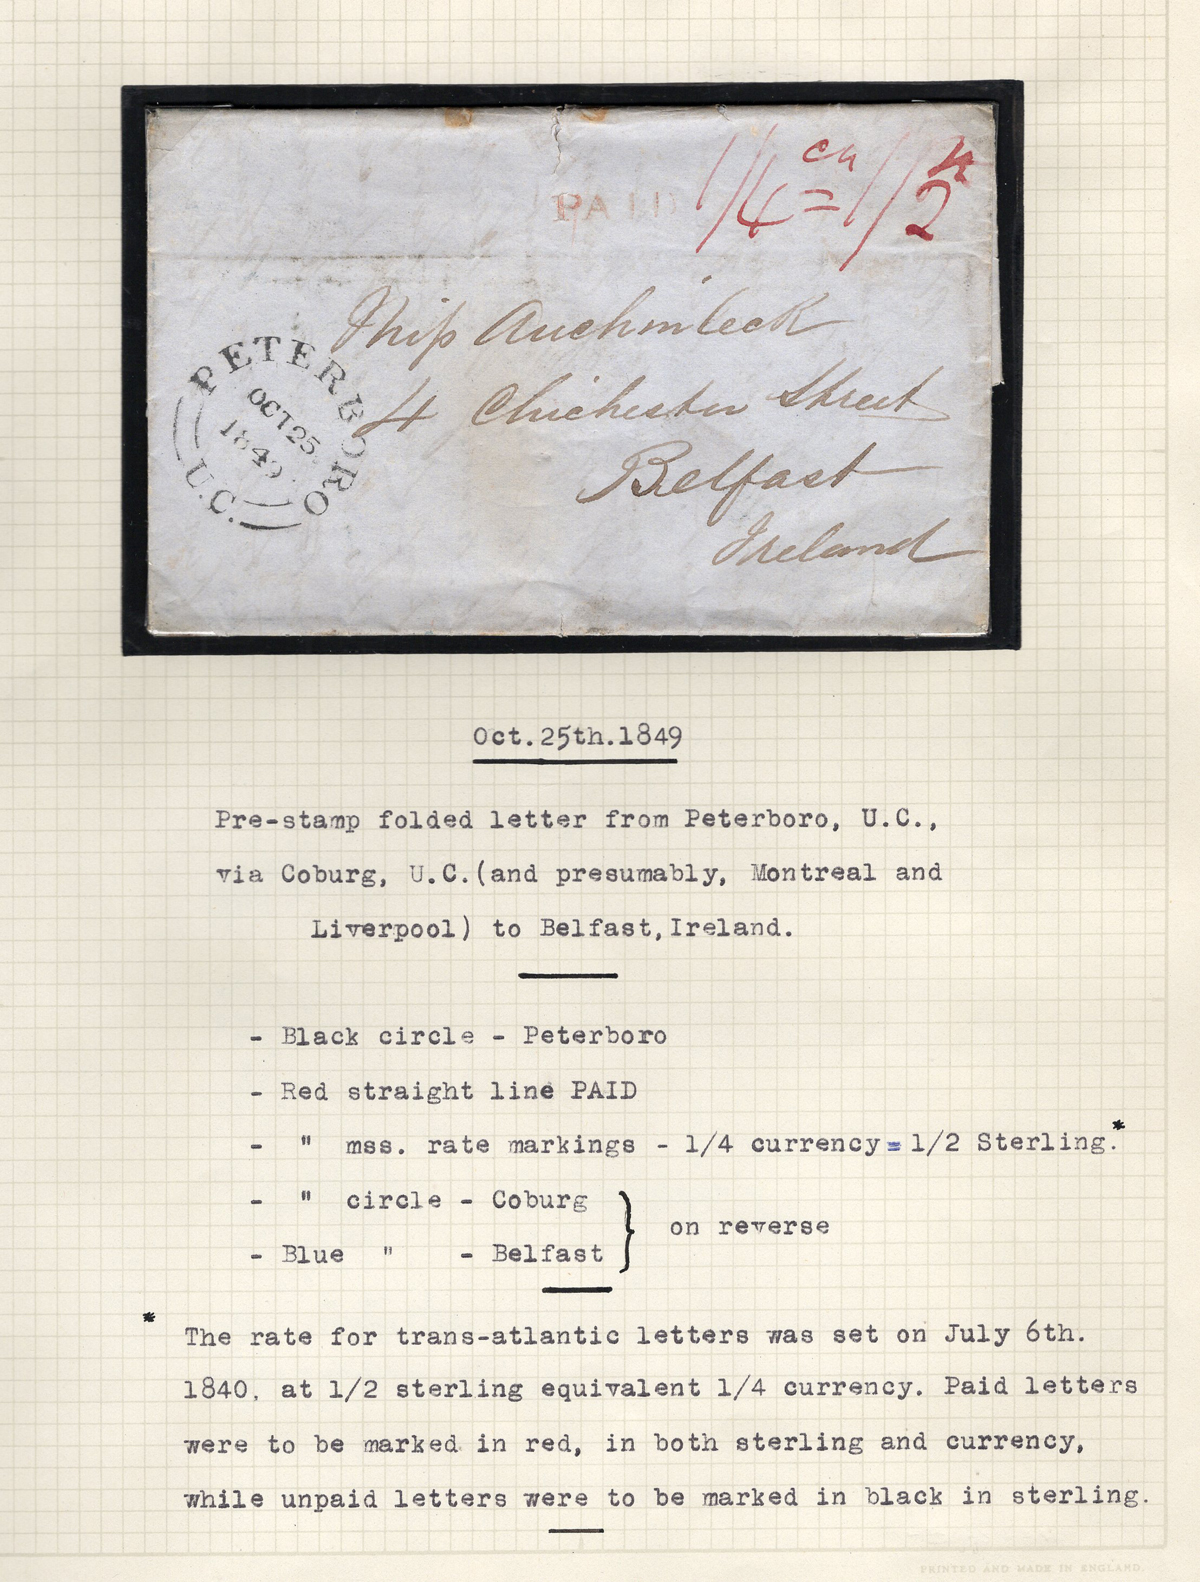 PAID 1/4 cy = 1/2
Miss Auchinleck
4 Chichester Street
Belfast
Ireland
PETERBORO
OCT 25
1849
U.C.
Oct.25th.1849
Pre-stamp folded letter from Peterboro, U.C.,
via Coburg, U.C.(and presumably, Montreal and
Liverpool) to Belfast,Ireland.
- Black circle - Peterboro
- Red straight line PAID
- " mss. rate markings - 1/4 currency=1/2 Sterling.*
- " circle - Coburg
- Blue " - Belfast
on reverse
* The rate for trans-atlantic letters was set on July 6th.
1840, at 1/2 sterling equivalent 1/4 currency. Paid letters
were to be marked in red, in both sterling and currency,
while unpaid letters were to be marked in black in sterling.
PRINTED AND MADE IN ENGLAND.